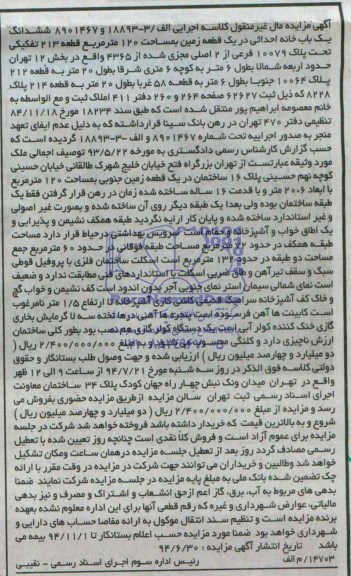 آگهی مزایده مال غیرمنقول کلاسه اجرایی الف /۳-۱۸۸۹۳ و ۸۹۰۱۴۶۷ ششدانگ
یک باب خانه احداثی در یک قطعه زمین بمساحت ۱۲۰ مترمربع قطعه ۲۱۳ تفکیکی
تحت پلاک ۱۰۰۷۹ فرعی از ۲ اصلی مجزی شده از ۴۳۶۵ واقع در بخش ۱۲ تهران
حدود اربعه شمالا بطول ۶ متر به کوچه ۶ متری شرقا بطول ۲۰ متر به قطعه ۲۱۲
پلاک ۱۰۰۶۴ جنوبا بطول ۶ متر به قطعه ۵۸ غربا بطول ۲۰ متر به قطعه ۲۱۴ پلاک
۸۲۲۸ که ذیل ثبت ۴۲۶۲۷ صفحه ۲۶۴ و ۲۶۰ دفتر ۴۱۱ املاک ثبت و مع الواسطه به
خانم معصومه ابراهیم پور منتقل شده است که طبق سند ۱۸۲۳۴ مورخ ۸۴/۱۱/۱۸
تنظیمی دفتر ۴۷۰ تهران در رهن بانک سینا قرار داشته که به دلیل عدم ایفای تعهد
منجر به صدور اجراییه تحت شماره ۸۹۰۱۴۶۷ و الف -۳-۱۸۸۹۳ گردیده است که
حسب گزارش کارشناس رسمی دادگستری به مورخه ۹۳/۵/۲۲ توصیف اجمالی ملک
مورد وثیقه عبارتست از تهران بزرگراه فتح خیابان خلیج شهرک طالقانی خیابان حسینی
کوچه نهم حسینی پلاک ۱۶ ساختمان در یک قطعه زمین جنوبی بمساحت ۱۲۰ مترمربع
با ابعاد ۶*۲۰ متر و با قدمت ۱۶ ساله ساخته شده زمان در رهن قرار گرفتن فقط یک
طبقه ساختمان بوده ولی بعدا یک طبقه دیگر روی آن ساخته شده و بصورت غیر اصولی
و غیر استاندارد ساخته شده و پایان کار ارایه نگردید طبقه همکف نشیمن و پذیرایی و
یک اطاق خواب و آشپزخانه و حمام دارد سرویس بهداشتی در حیاط قرار دارد مساحت
طبقه همکف در حدود ۷۲ مترمربع مساحت طبقه فوقانی در حدود ۶۰ مترمربع جمع
مساحت دو طبقه در حدود ۱۳۲ مترمربع است اسکلت ساختمان فلزی با پروفیل قوطی
سبک و سقف تیرآهن و طاق ضربی اسکلت با استانداردهای فنی مطابقت ندارد و ضعیف
است نمای شمالی سیمان استر نمای جنوبی آجر بدون اندود است کف نشیمن و خواب گچ
و خاک کف آشپزخانه سرامیک قدیمی کاشی کاری آشپزخانه تا ارتفاع ۱/۵ متر نامرغوب
است کابینت ها آهن فرسوده است پنجره ها آهنی درها تخته سه لا گرمایش بخاری
گازی خنک کننده کولر آبی است یک دستگاه کولر گازی هم نصب بود بطور کلی ساختمان
ارزش ناچیزی دارد و کلنگی محسوب می شود و به مبلغ ۲/۴۰۰/۰۰۰/۰۰۰ ریال (
دو میلیارد و چهارصد میلیون ریال ) ارزیابی شده و جهت وصول طلب بستانکار و حقوق
دولتی کلاسه فوق الذکر در روز سه شنبه مورخ ۹۴/۷/۲۱ از ساعت ۹ الی ۱۲ ظهر
واقع در تهران میدان ونک نبش چهار راه جهان کودک پلاک ۳۴ ساختمان معاونت
اجرای اسناد رسمی ثبت تهران سالن مزایده ازطریق مزایده حضوری بفروش می
رسد و مزایده از مبلغ ۲/۴۰۰/۰۰۰/۰۰۰ ریال (دو میلیارد و چهارصد میلیون ریال )
شروع و به بالاترین قیمت که خریدار داشته باشد فروخته خواهد شد شرکت در جلسه
مزایده برای عموم آزاد است و فروش کلا نقدی است چنانچه روز تعیین شده با تعطیل
رسمی مصادف گردد روز بعد از تعطیل جلسه مزایده درهمان ساعت ومکان تشکیل
خواهد شد وطالبین و خریداران می توانند جهت شرکت در مزایده در وقت مقرر با ارائه
چک تضمین شده بانک ملی به مبلغ پایه مزایده در جلسه مزایده شرکت نمایند ضمنا
بدهی های مربوط به آب، برق، گاز اعم از حق انشعاب و اشتراک و مصرف و نیز بدهی
مالیاتی، عوارض شهرداری و غیره که رقم قطعی آنها برای این اداره معلوم نشده بعهده
برنده مزایده است و تنظیم سند انتقال موکول به ارائه مفاصا حساب های دارایی و
شهرداری خواهد بود ضمنا مورد مزایده حسب اعلام بستانکار تا ۹۴/۱۱/۱ بیمه می
باشد تاریخ انتشار آگهی مزایده : ۹۴/۶/۳۰
۱۴۷۰۳/م الف رئیس اداره سوم اجرای اسناد رسمی - نقیبی